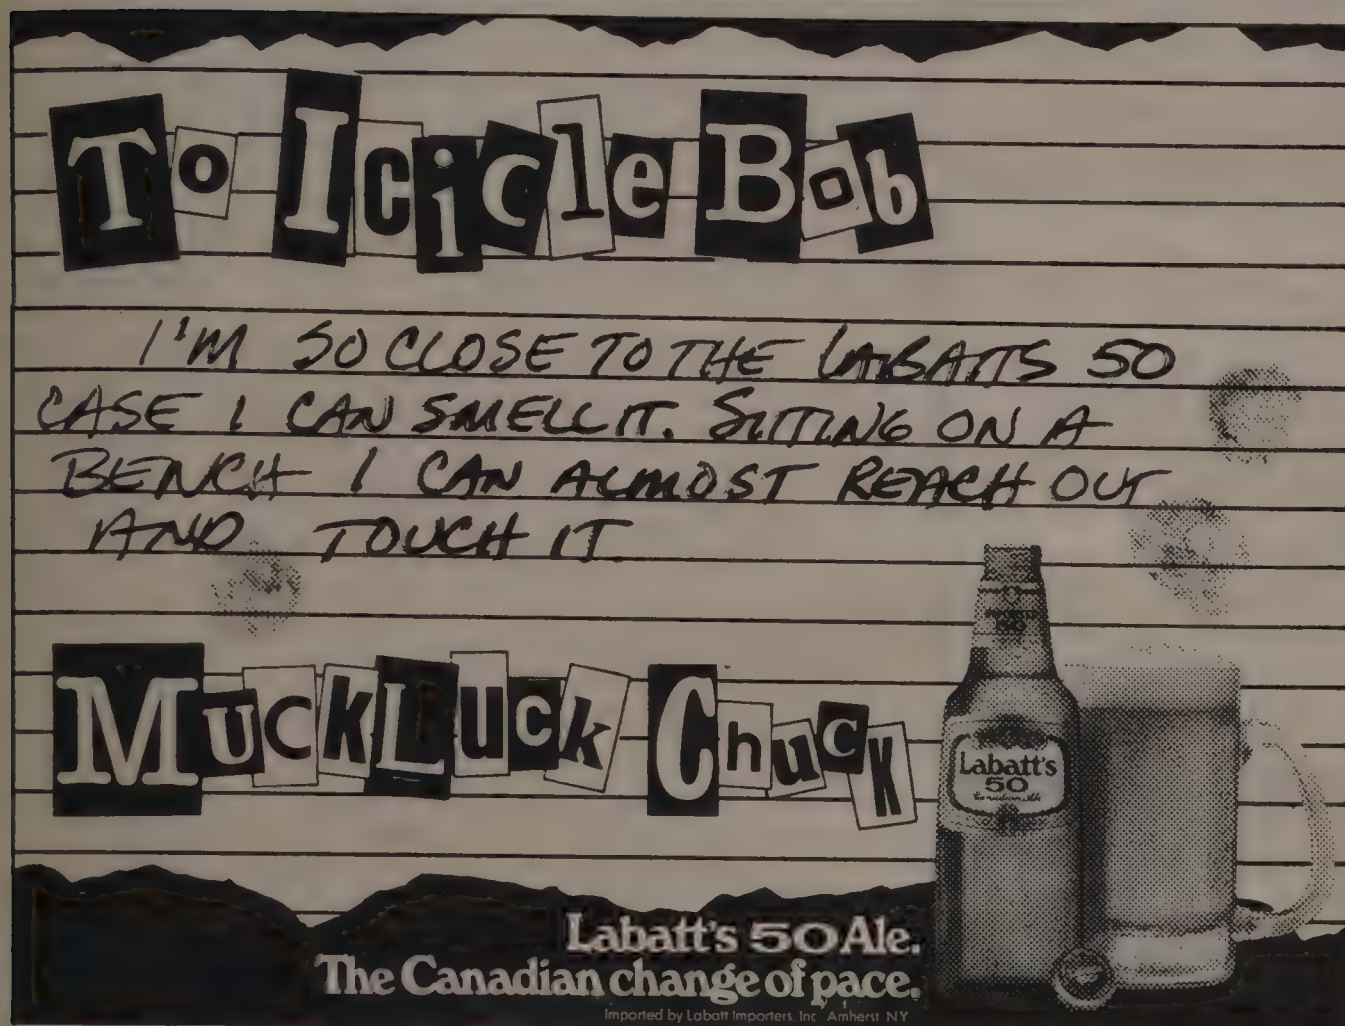 To Icicle Bob
I'M SO CLOSE TO THE LABATTS 50
CASE I CAN SMELL IT. SITTING ON A
BENCH I CAN ALMOST REACH OUT
AND TOUCH IT
MuckLuck Chuck
Labatt's
50
Canadian Ale
Labatt's 50 Ale.
The Canadian change of pace.
Imported by Labatt Importers, Inc Amherst NY